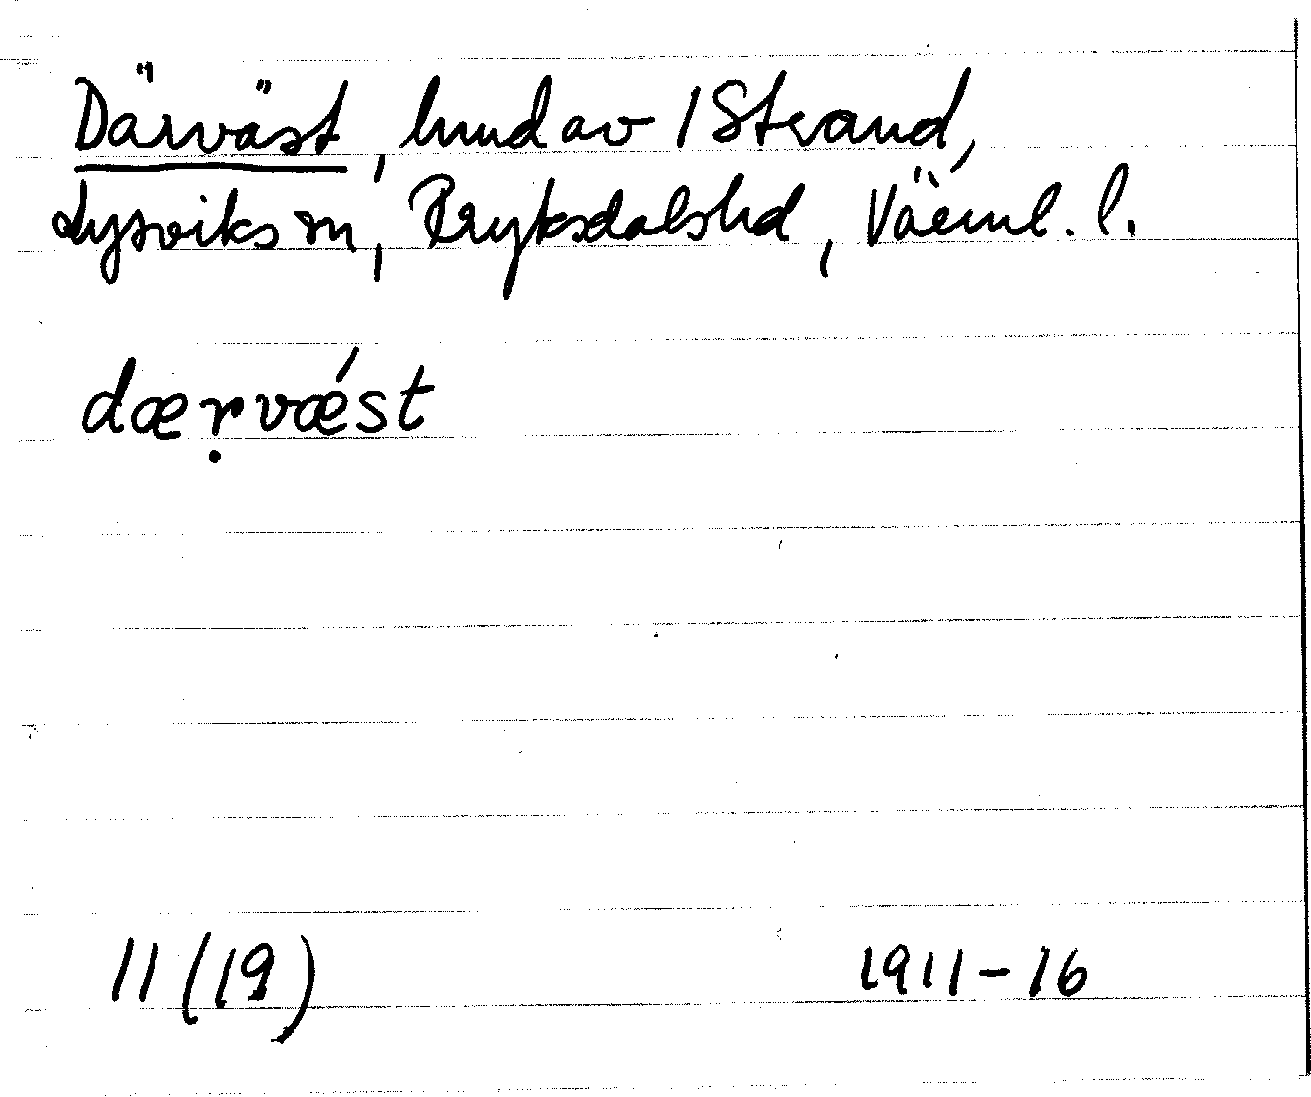 Därväst, lmd av 1 Strand,
Lysviks sn, Fryksdals hd, Värml. l.
dærvǽst
11 (19) 1911-16